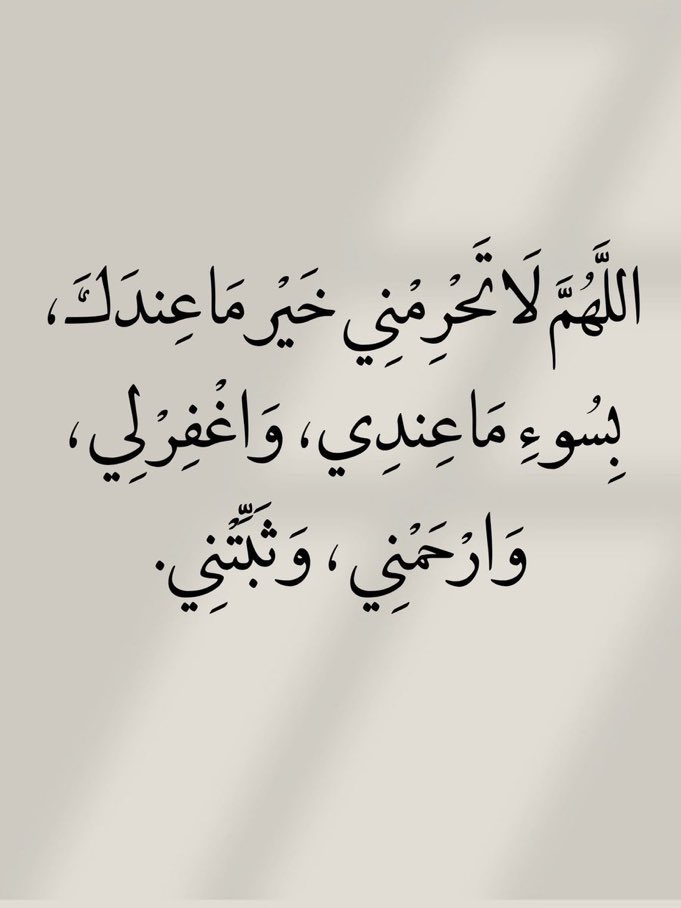 اللَّهُمَّ لَا تَحْرِمْنِي خَيْر مَا عِندَكَ،
بِسُوءِ مَا عِندِي، وَاغْفِرْ لِي،
وَارْحَمْنِي، وَثَبِّتْنِي.